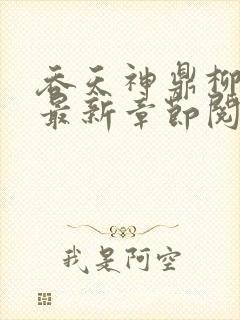 吞天神鼎柳
最新章节阅
我是阿空